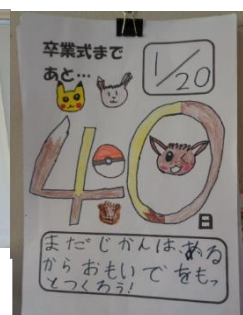 卒業式まで
あと…
1/20
40
日
まだじかんは、ある
からおもいでをもっ
とつくろう!